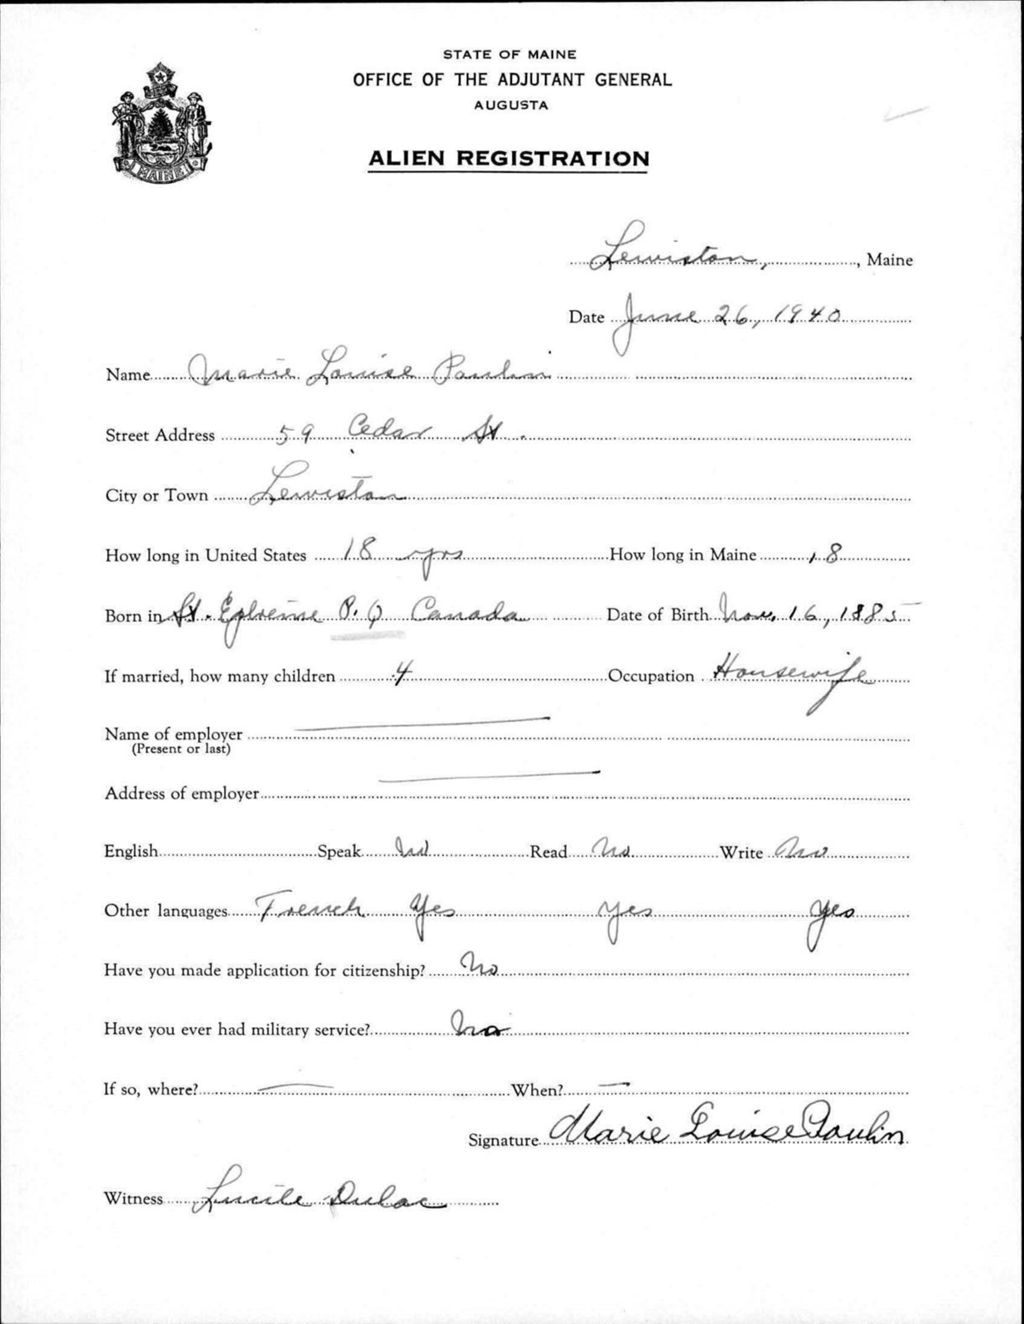 STATE OF MAINE
OFFICE OF THE ADJUTANT GENERAL
AUGUSTA
ALIEN REGISTRATION
MAINE
Lewiston, , Maine
Date June 26, 1940
Name Marie Louise Poulin
Street Address 59 Cedar St.
City or Town Lewiston
How long in United States 18 yrs How long in Maine 18
Born in St. P.Q Canada Date of Birth Nov. 16, 1885
If married, how many children 4 Occupation Housewife
Name of employer
(Present or last)
Address of employer
English Speak No Read No Write No
Other languages French Yes Yes Yes
Have you made application for citizenship? No
Have you ever had military service? No
If so, where? — When? —
Signature Marie Louise Poulin
Witness Lucile Dulac